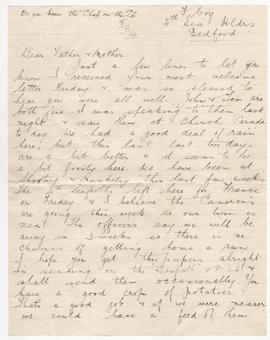 Do you know the Chap on the
5th F. Troy
Sea. Hldrs
Bedford
Dear Father & Mother
Just a few lines to let you
know I received your most welcome
letter Friday & was so pleased to
hear you were all well. John & Tom are
both fine I was speaking to them last
night & saw them at Church Parade
to day. We had a good deal of rain
here, but this last two days
are a bit better & it seems to be
a bit We have been at
Shooting & this last few weeks
The Seaforth left here for France
on Friday & I believe the Camerons
are going this week so our turn is
next. The officers say we will be
away in 3 weeks so there is no
chance of getting home a run
I hope you get the papers alright
I'm sending on the Despatch &
shall send them occasionally. You
have a good crop of potatoes
thats a good job & if we were nearer
we could have a feed of them